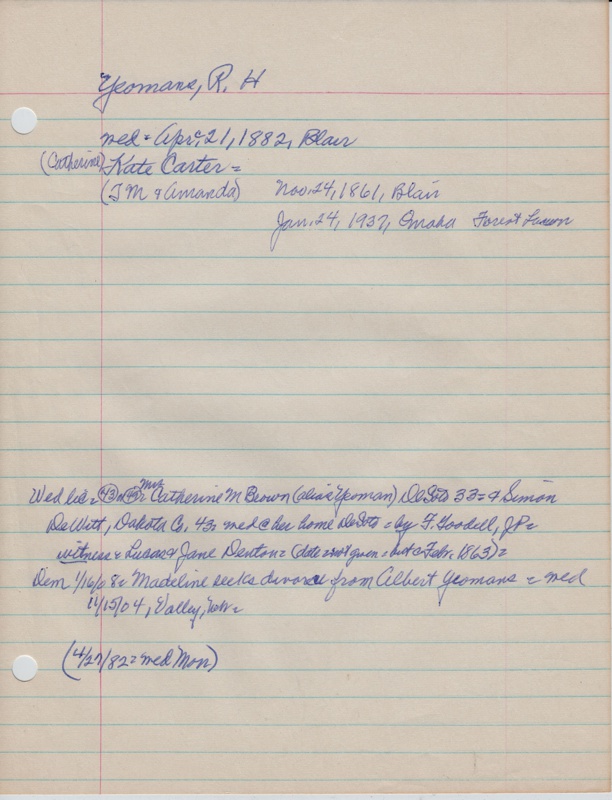 Yeomans, R. H
wed = Apr. 21, 1882, Blair
(Catherine) Kate Carter =
(J M & Amanda) Nov. 24, 1861, Blair
Jan. 24, 1937, Omaha Forest Lawn
Wed lic = Mrs Catherine M Brown (alias Yeoman) DeSoto 33 = & Simon
DeWitt, Dakota Co, 43 = wed @ her home DeSoto = by F. Goodell, JP =
witness = Lucas & Jane Denton = (date = not given = but c Feb, 1863) =
Dem 1/16/08 = Madeline seeks divorce from Albert Yeomans = wed
11/15/04, Valley, Neb =
(4/27/82 = wed Mon)